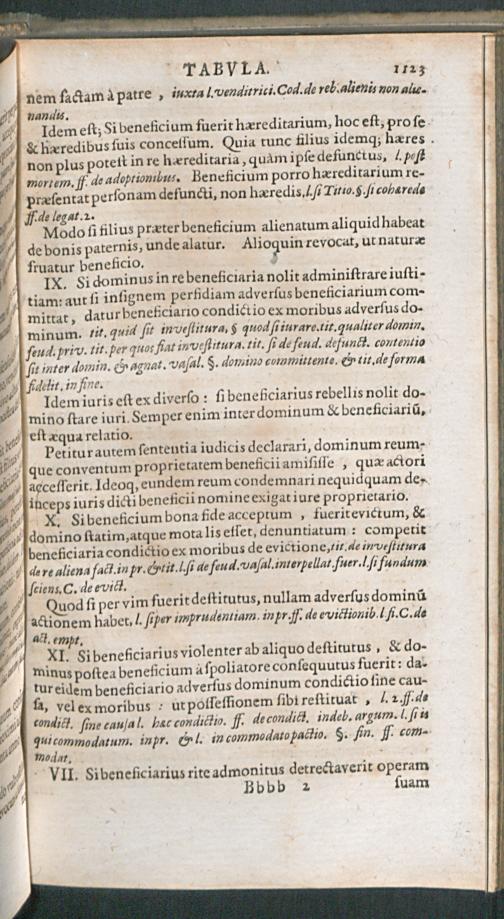 TABVLA. 1123
nem factam à patre , iuxta l. venditrici. Cod. de reb. alienis non alie-
nandis.
Idem est; Si beneficium fuerit hæreditarium, hoc est, pro se
& hæredibus suis concessum. Quia tunc filius idemq; hæres
non plus potest in re hæreditaria, quàm ipse defunctus, l. post
mortem. ff. de adoptionibus. Beneficium porro hæreditarium re-
præsentat personam defuncti, non hæredis, l. si Titio. §. si cohærede
ff. de legat. 2.
Modo si filius præter beneficium alienatum aliquid habeat
de bonis paternis, unde alatur. Alioquin revocat, ut naturæ
fruatur beneficio.
IX. Si dominus in re beneficiaria nolit administrare iusti-
tiam: aut si insignem perfidiam adversus beneficiarium com-
mittat, datur beneficiario condictio ex moribus adversus do-
minum. tit. quid sit investitura, § quod si iurare. tit. qualiter domin.
feud. priv. tit. per quos fiat investitura. tit. si de feud. defunct. contentio
sit inter domin. & agnat. vasal. §. domino committente. & tit. de forma
fidelit. in fine.
Idem iuris est ex diverso : si beneficiarius rebellis nolit do-
mino stare iuri. Semper enim inter dominum & beneficiariũ,
est æqua relatio.
Petitur autem sententia iudicis declarari, dominum reum-
que conventum proprietatem beneficii amisisse , quæ actori
accesserit. Ideoq, eundem reum condemnari nequidquam de-
inceps iuris dicti beneficii nomine exigat iure proprietario.
X. Si beneficium bona fide acceptum , fuerit evictum, &
domino statim, atque mota lis esset, denuntiatum : competit
beneficiaria condictio ex moribus de evictione, tit. de investitura
de re aliena fact. in pr. & tit. l. si de feud. vasal. interpellat. fuer. l. si fundum
sciens, C. de evict.
Quod si per vim fuerit destitutus, nullam adversus dominũ
actionem habet, l. si per imprudentiam. in pr. ff. de evictionib. l. si. C. de
act. empt,
XI. Si beneficiarius violenter ab aliquo destitutus , & do-
minus postea beneficium à spoliatore consequutus fuerit : da-
tur eidem beneficiario adversus dominum condictio sine cau-
sa, vel ex moribus : ut possessionem sibi restituat , l. 2. ff. de
condict. sine causa l. hæc condictio. ff. de condict. indeb. argum. l. si is
qui commodatum. in pr. & l. in commodato pactio. §. fin. ff. com-
modat,
VII. Si beneficiarius rite admonitus detrectaverit operam
Bbbb 2 suam